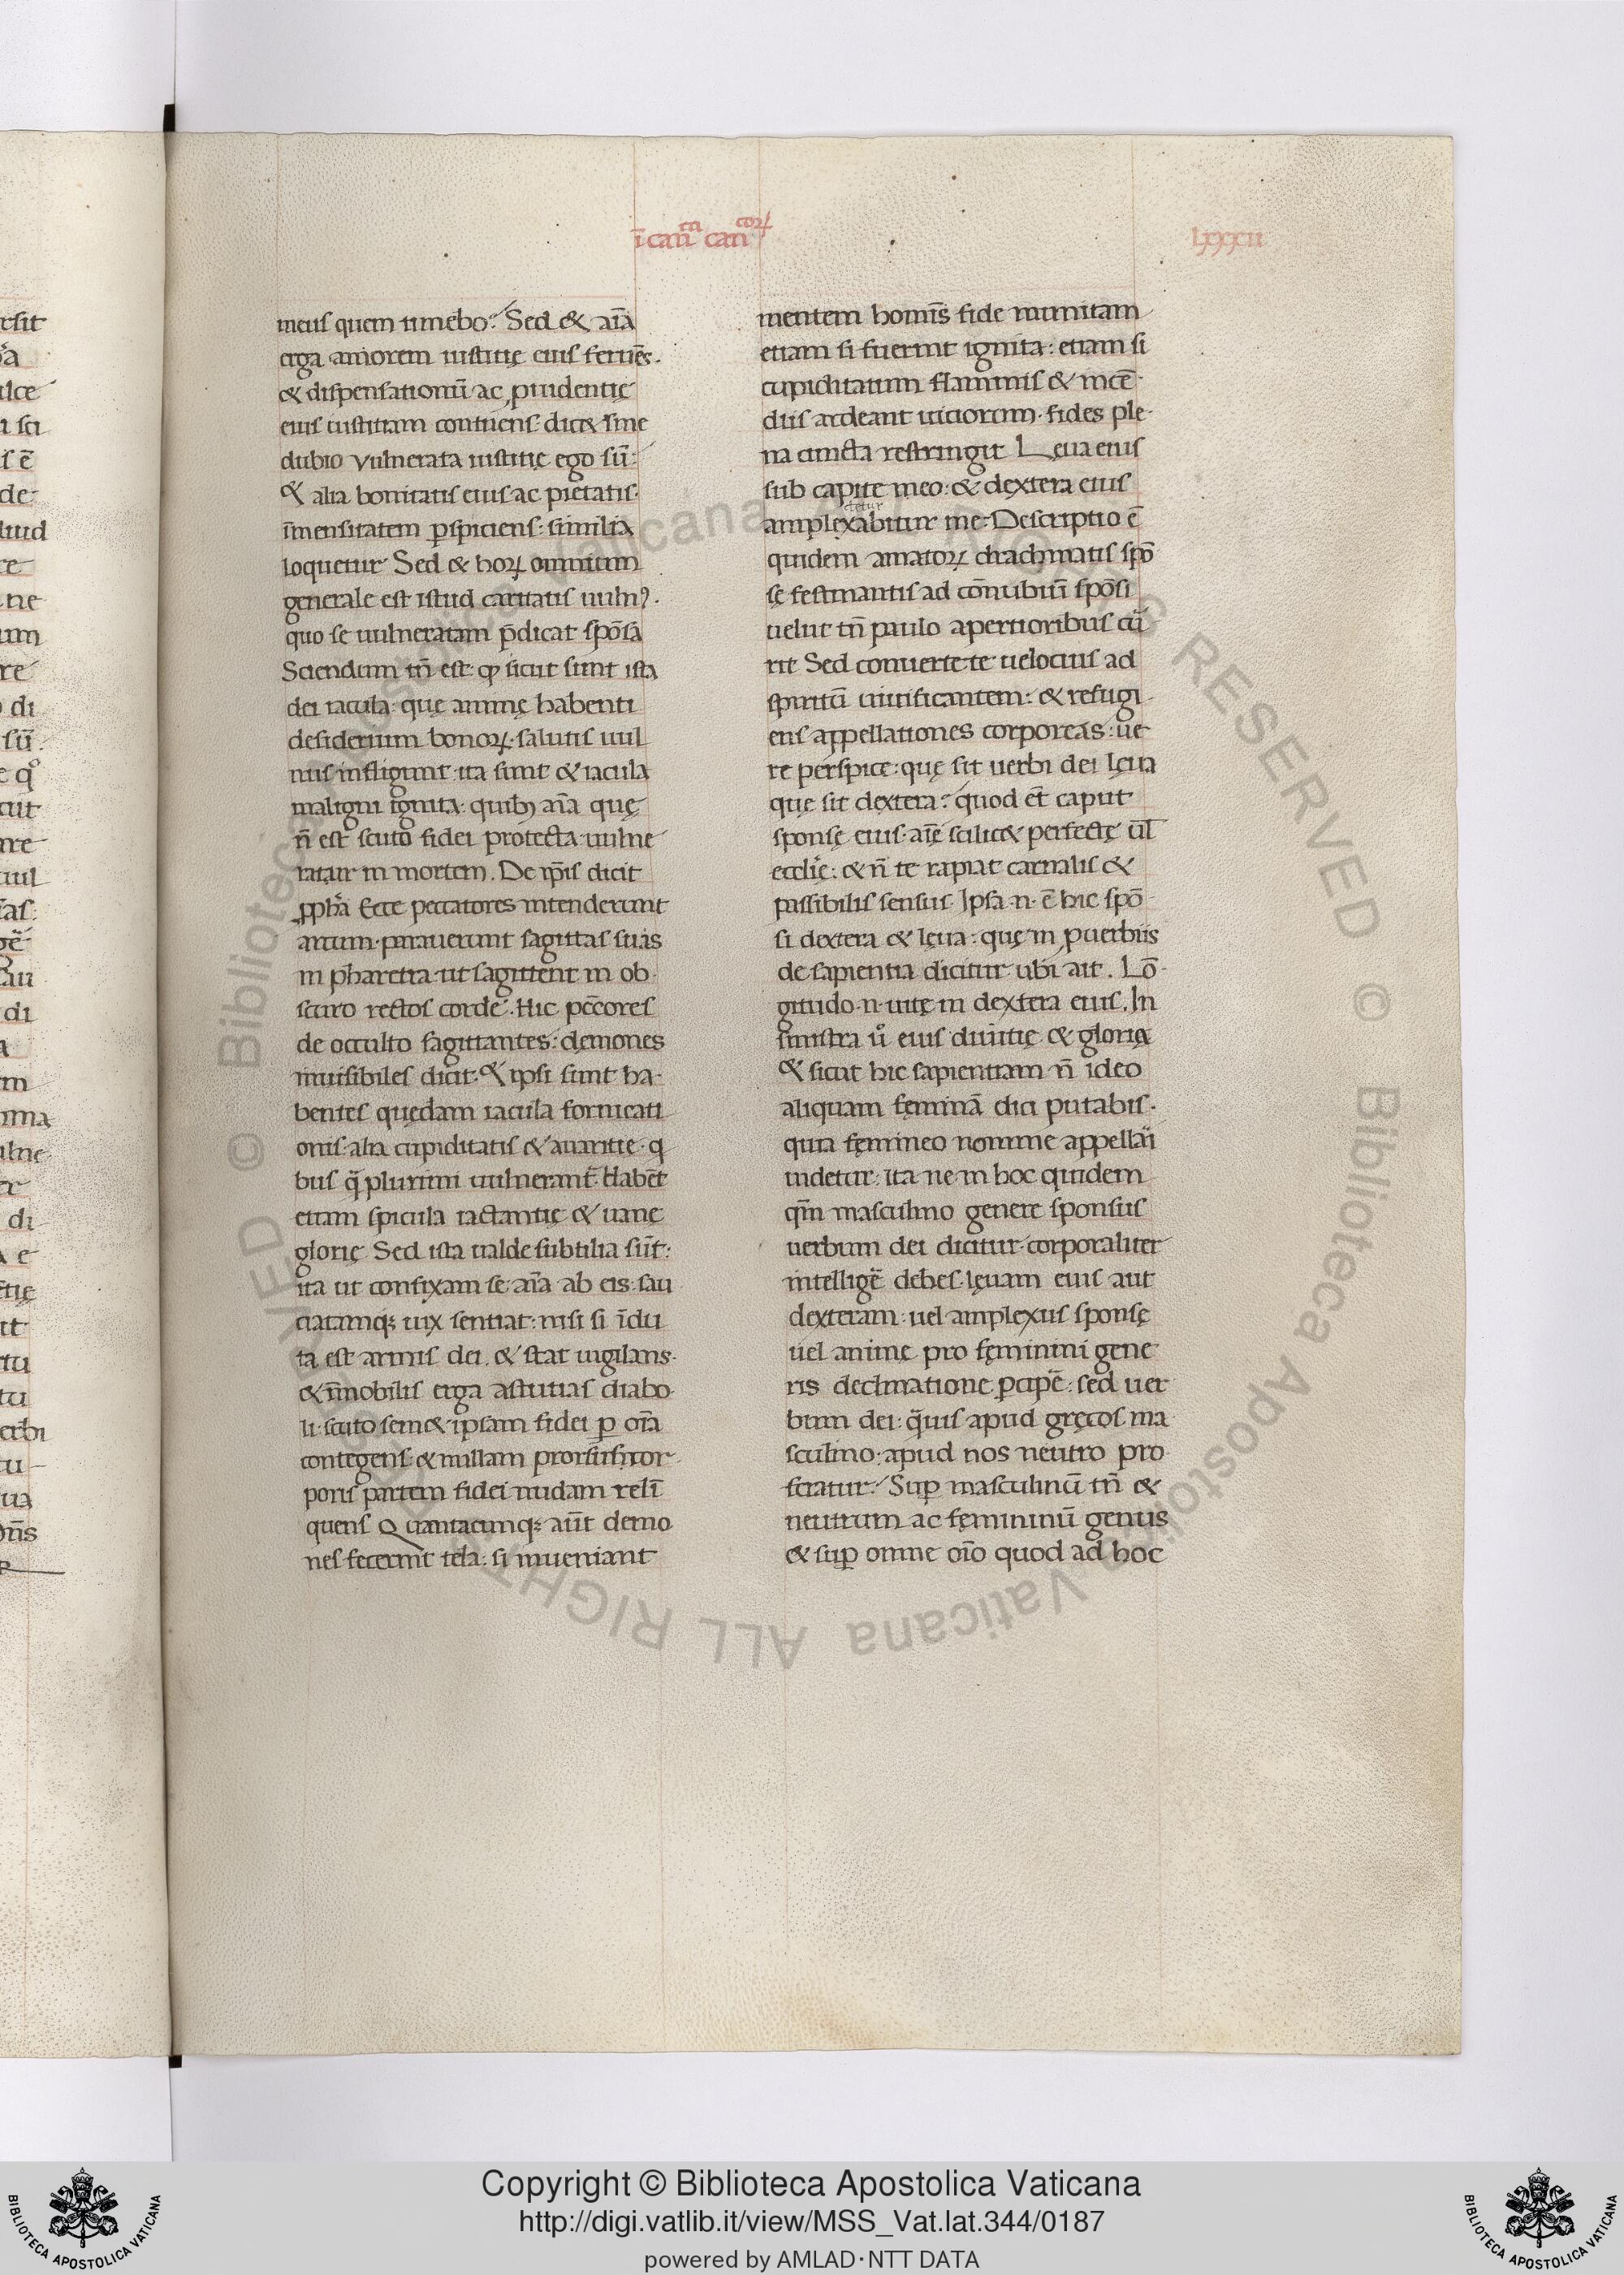 ī canticā canticorꝝ
lxxxii
meus quem timebo? Sed & aīa
erga amorem iustitię eius feruēs.
& dispensationū ac ꝓuidentię
eius iustitiam contuens: dic& sine
dubio vulnerata iustitię ego sū:
& alia bonitatis eius ac pietatis
īmensitatem ꝑspiciens: similia
loquetur Sed & horꝝ omnium
generale est istud caritatis uulnꝰ.
quo se uulneratam p̄dicat spōsa
Sciendum tn̄ est: ꝙ sicut sunt ista
dei iacula: quę animę habenti
desiderium bonorꝝ salutis uul
nus infligunt: ita sunt & iacula
maligni ignita: quibꝫ aīa quę
n̄ est scuto fidei protecta uulne
ratur in mortem. De ip̄is dicit
ꝓpha Ecce peccatores intenderunt
arcum parauerunt sagittas suas
in pharetra ut sagittent in ob
scuro rectos corde. Hic pecc̄ores
de occulto sagittantes: dęmones
inuisibiles dicit. & ipsi sunt ha-
bentes quędam iacula fornicati
onis alia cupiditatis & auaritię q
bus q̄ plurimi uulnerant̄. Habēt
etiam spicula iactantię & uanę
glorię Sed ista ualde subtilia sūt:
ita ut confixam se aīa ab eis sau
ciatamqꝫ uix sentiat: nisi si īdu
ta est armis dei. & stat uigilans.
& īmobilis erga astutias diabo
li: scuto sem& ipsam fidei ꝑ oīa
contegens: & nullam prorsus cor
poris partem fidei nudam relī
quens Quantacunqꝫ aūt demo
nes fecerint tela: si inueniant
mentem homīs fide munitam
etiam si fuerint ignita: etiam si
cupiditatum flammis & incē
diis ardeant uiciorum fides ple-
na cuncta restringit Leua eius
sub capite meo: & dextera eius
ctetur
amplexabitur me Descriptio ē
quidem amatorꝝ drachmatis spō
sę festinantis ad cōnubiū spōsi
uelut tn̄ paulo apertioribus cū
rit Sed conuerte te uelocius ad
spiritū uiuificantem: & refugi
ens appellationes corporeas: ue
re perspice: quę sit uerbi dei lęua
quę sit dextera? quod et̄ caput
sponsę eius aīę scilic& perfectę ūl
eccl̄ię: & n̄ te rapiat carnalis &
passibilis sensus Ipsa n̄ ē hic spō
si dextera & lęua: quę in ꝓuerbiis
de sapientia dicitur ubi ait. Lō-
gitudo n̄ uitę in dextera eius. In
sinistra u̾ eius diuitię & glorię
& sicut hic sapientiam n̄ ideo
aliquam fęminā dici putabis.
quia fęmineo nomine appellāri
uidetur: ita ne in hoc quidem
qm̄ masculino genere sponsus
uerbum dei dicitur corporaliter
intelligē debes lęuam eius aut
dexteram: uel amplexus sponsę
uel animę pro fęminini gene
ris declinatione ꝑcipē: sed uer
bum dei: q̄uis apud gręcos ma
sculino apud nos neutro pro
feratur. Suꝑ masculinū tn̄ &
neutrum ac fęmininū genus
& suꝑ omne oīo quod ad hoc
Copyright © Biblioteca Apostolica Vaticana
http://digi.vatlib.it/view/MSS_Vat.lat.344/0187
powered by AMLAD·NTT DATA